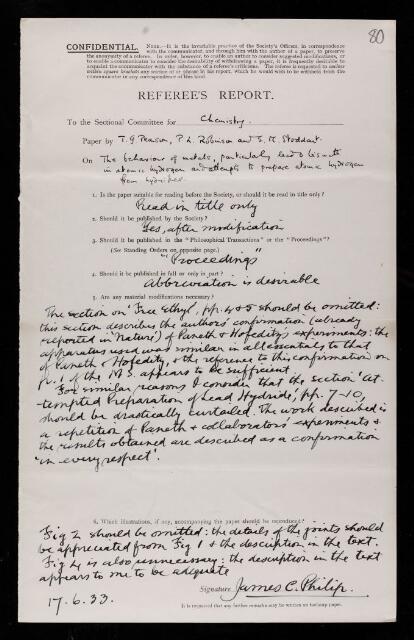 80
CONFIDENTIAL. NOTE.—It is the invariable practice of the Society's Officers, in correspondence
with the communicator, and through him with the author of a paper, to preserve
the anonymity of a referee. In order, however, to enable an author to consider suggested modifications, or
to enable a communicator to consider the desirability of withdrawing a paper, it is frequently desirable to
acquaint the communicator with the substance of a referee's criticisms. The referee is requested to enclose
within square brackets any section of or phrase in his report, which he would wish to be withheld from the
communicator or any correspondence of this kind.
REFEREE'S REPORT.
To the Sectional Committee for Chemistry.
Paper by T. G. Pearson, P. L. Robinson and E. M. Stoddart.
On The behaviour of metals, particularly lead & bismuth
in atomic hydrogen and attempts to prepare atomic hydrogen
from hydrides.
1. Is the paper suitable for reading before the Society, or should it be read in title only?
Read in title only
2. Should it be published by the Society?
Yes, after modification
3. Should it be published in the "Philosophical Transactions" or the "Proceedings"?
(See Standing Orders on opposite page.)
"Proceedings"
4. Should it be published in full or only in part?
Abbreviation is desirable
5. Are any material modifications necessary?
The section on 'Free Ethyl', pp. 4 & 5 should be omitted:
this section describes the authors' confirmation (already
reported in 'Nature') of Paneth & Hofeditz' experiments: the
apparatus used was similar in all essentials to that
of Paneth & Hofeditz, & the reference to this confirmation on
p. 1 of the MS. appears to be sufficient.
For similar reasons I consider that the section 'At-
tempted Preparation of Lead Hydride', pp. 7-10,
should be drastically curtailed. The work described is
a repetition of Paneth & collaborators' experiments &
the results obtained are described as a confirmation
'in every respect'.
6. Which illustrations, if any, accompanying the paper should be reproduced?
Fig 2 should be omitted: the details of the joints should
be appreciated from Fig 1 & the description in the text.
Fig 4 is also unnecessary: the description in the text
appears to me to be adequate
Signature James C. Philip.
17.6.33.
It is requested that any further remarks may be written on foolscap paper.